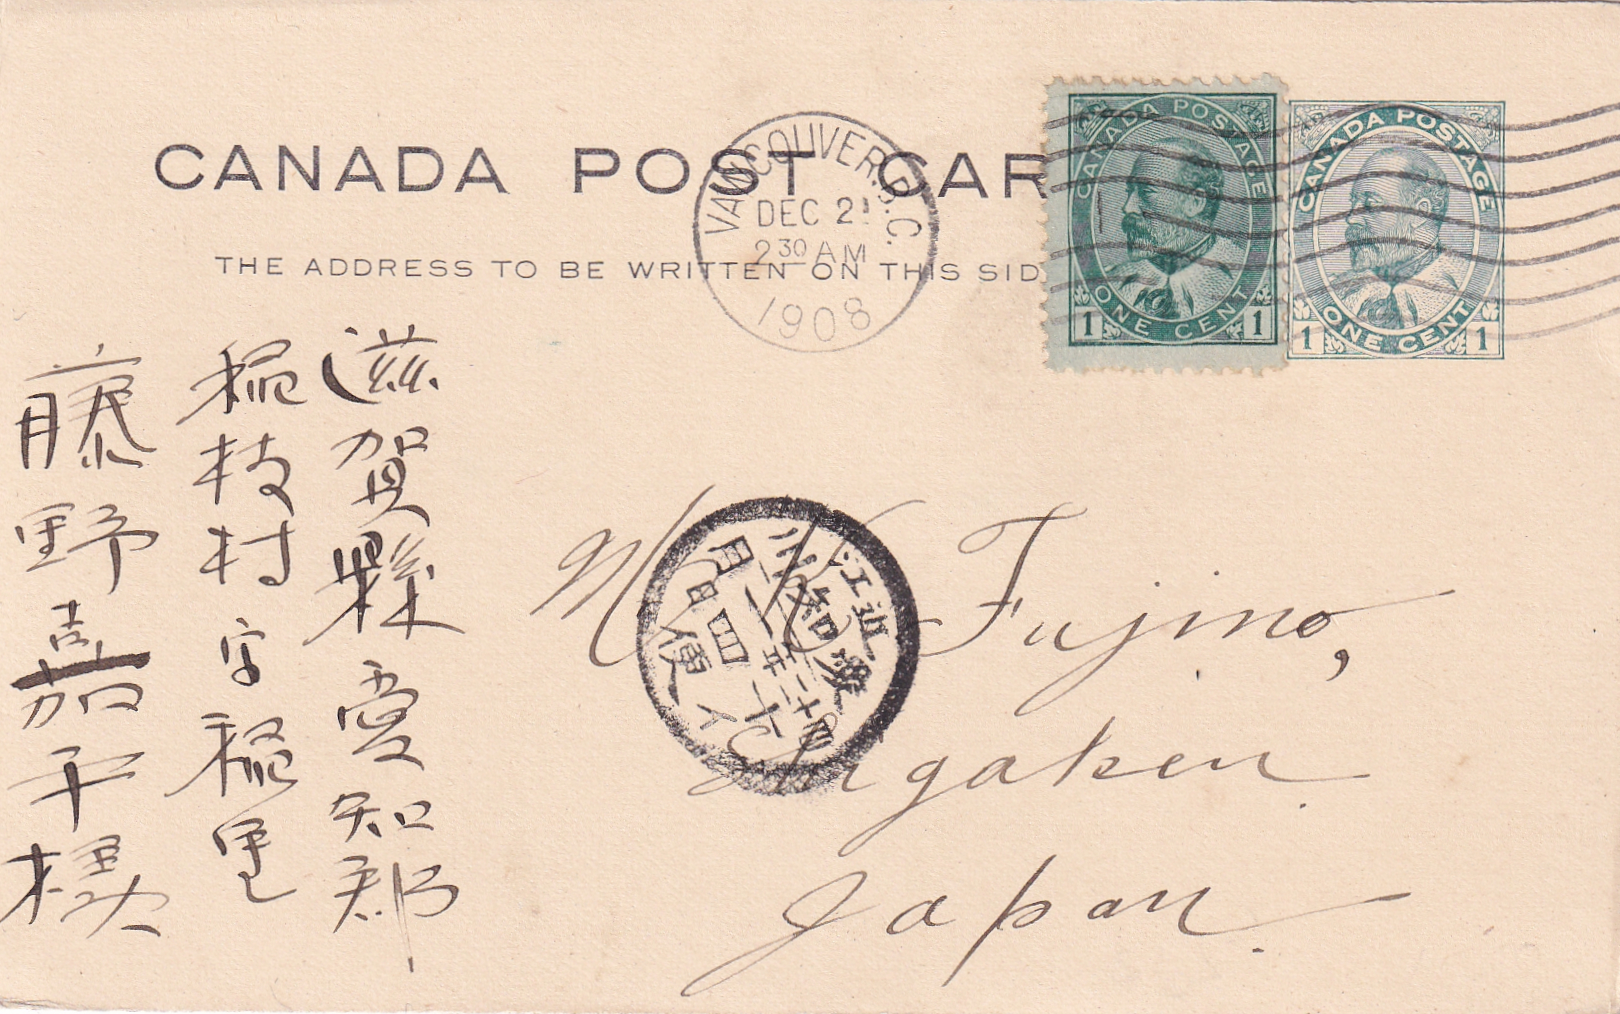 CANADA POST CAR
THE ADDRESS TO BE WRITTEN ON THIS SID
VANCOUVER.B.C.
DEC 21
2 30 AM
1908
CANADA POSTAGE
ONE CENT
1 1
CANADA POSTAGE
ONE CENT
1 1
滋賀縣愛知郡
稲枝村字稲里
藤野嘉平様
K. Fujino,
Shigaken
Japan.
近江
愛知川
四十二年
一月十四日
便